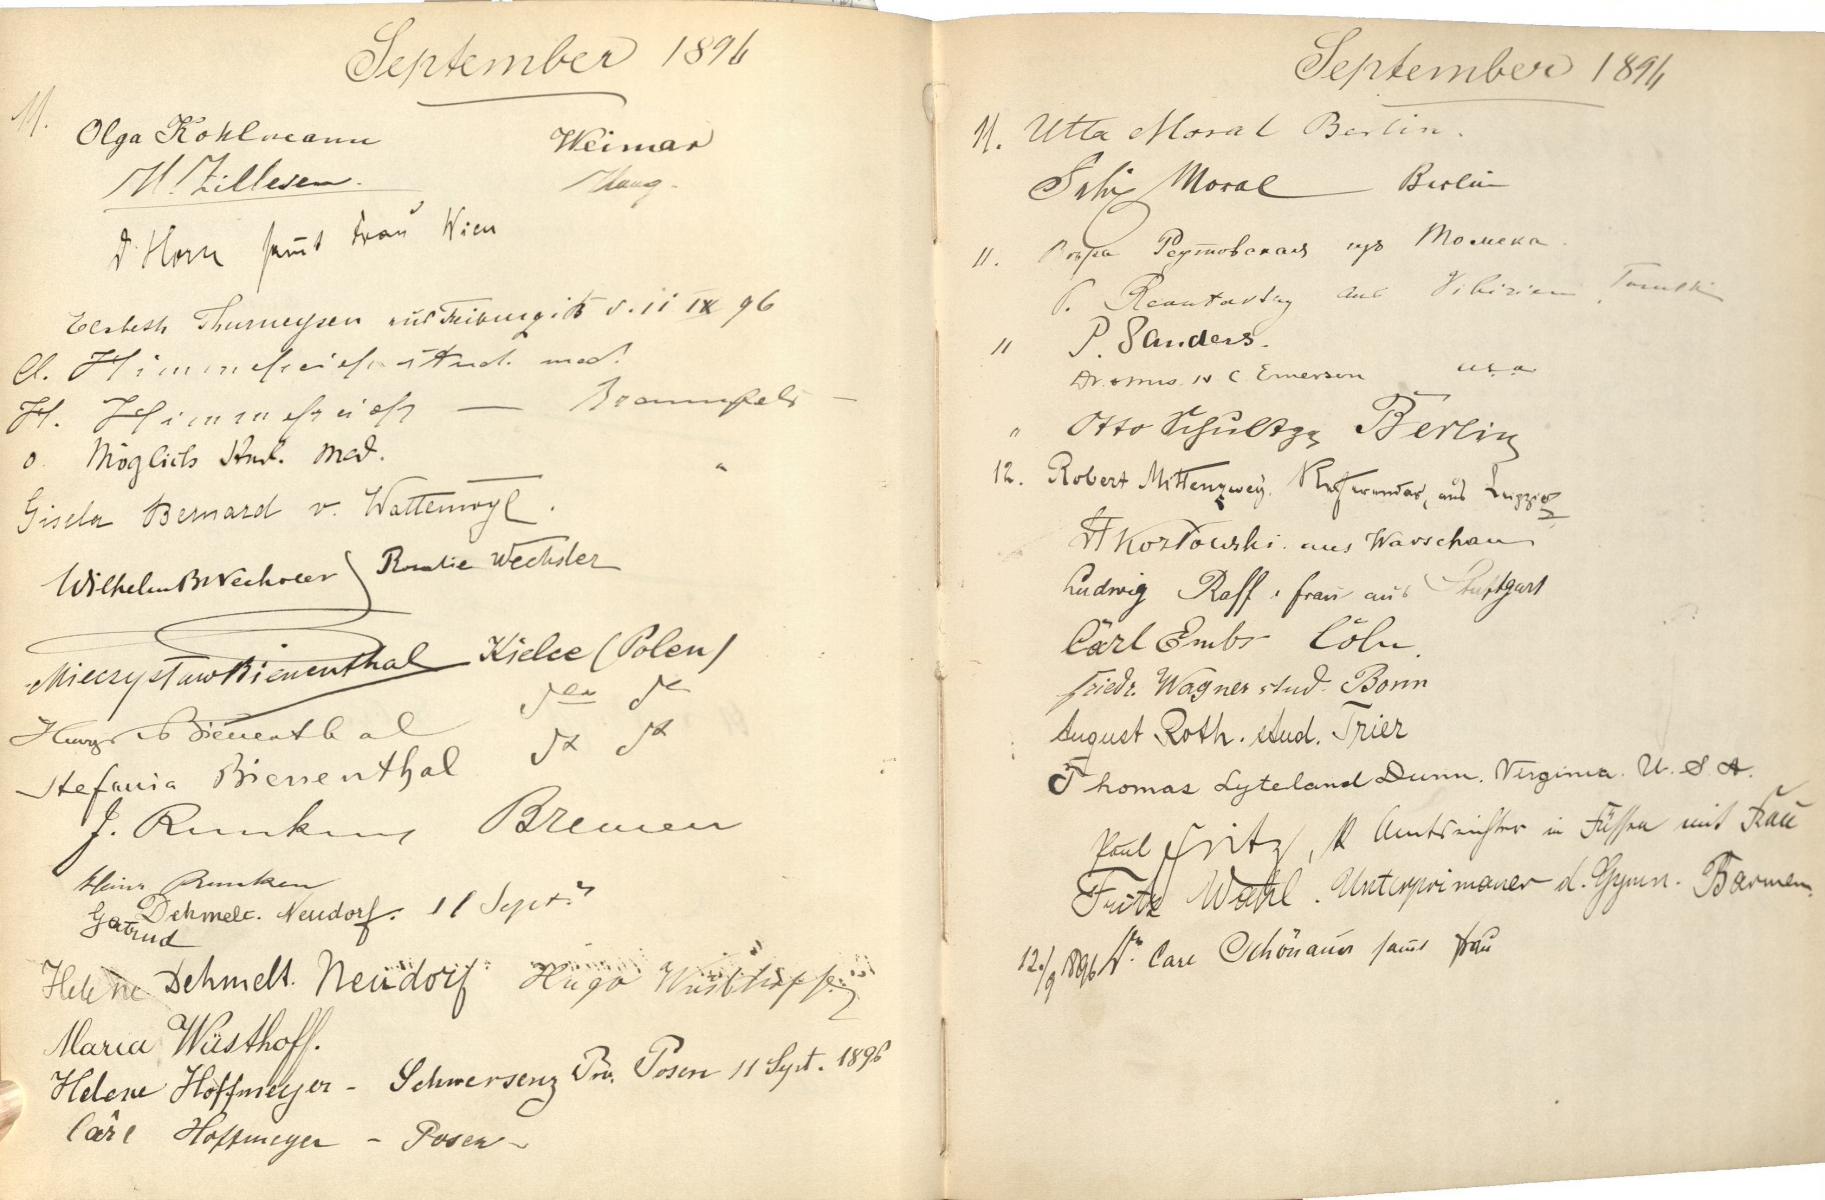 September 1896
11.
Olga Kohlmann Weimar
H. Zillesen. Haag.
Dr Horn samt Frau Wien
Elsbeth Thurneysen aus Freiburg i/B d. 11 IX 96
Cl. Himmelreich stud. med.
H. Himmelreich — Braunfels —
O. Möglich Stud. med. "
Gisela Bernard v. Wattenwyl.
Wilhelm Rosalie Wechsler
Mieczysław Bienenthal Kielce (Polen)
Bienenthal
Stefania Bienenthal
J. Runken Bremen
Heinr Runken
Gertrud Dehmelt. Neudorf. 11 Sept.
Helene Dehmelt. Neudorf Hugo
Maria Wüsthoff.
Helene Hoffmeyer - Schwersenz Prov. Posen 11 Sept. 1896
Carl Hoffmeyer - Posen -
September 1896
11. Utta Moral Berlin.
Moral Berlin
11. Реутовская изъ Томска.
aus Sibirien, Tomsk
11 P. Sanders.
Dr & Mrs. N C Emerson U.S.A
" Otto Schultze Berlin
12. Robert Mittenzwey. Referendar, aus Leipzig
Kozłowski. aus Warschau
Ludwig Raff & Frau aus Stuttgart
Carl Embs Cöln.
Friedr. Wagner stud. Bonn
August Roth. stud. Trier
Thomas Lyteland Dunn. Virginia. U. S. A.
Paul Fritz, K Amtsrichter in Füssen mit Frau
Fritz Wahl. Unterprimaner d. Gymn. Barmen.
12./9 1896 Dr. Carl Schönauer samt Frau